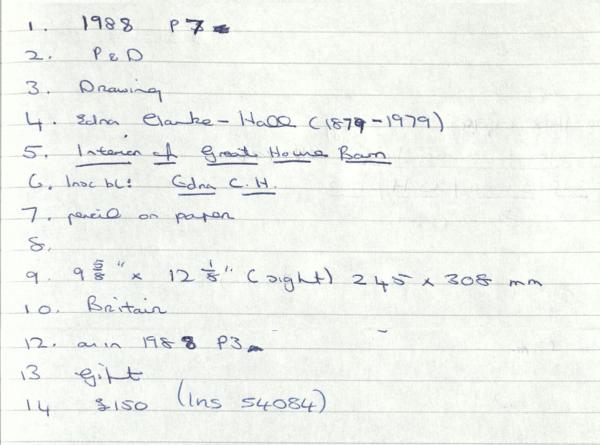 1. 1988 P3
2. P & D
3. Drawing
4. Edna Clarke-Hall (1879-1979)
5. Interior of Great House Barn
6. Insc bl: Edna C.H.
7. pencil on paper
8.
9. 9 5/8" x 12 1/8" (sight) 245 x 308 mm
10. Britain
12. as in 1988 P3
13 gift
14 £150 (Ins 54084)